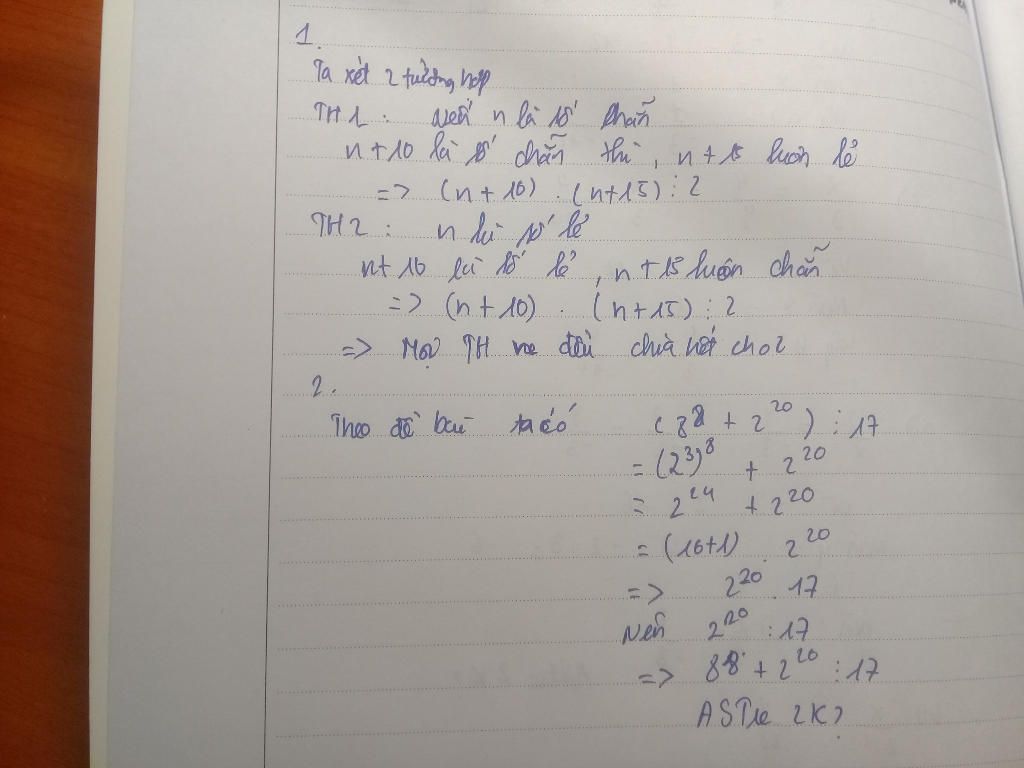 1.
Ta xét 2 tường hợp
TH1: Nếu n là số chẵn
n+10 là số chẵn thì, n+15 luôn lẻ
=> (n+10) . (n+15) ⋮ 2
TH2: n là số lẻ
n+10 là số lẻ, n+15 luôn chẵn
=> (n+10) . (n+15) ⋮ 2
=> Mọi TH đều chia hết cho 2
2.
Theo đề bài ta có (8⁸ + 2²⁰) ⋮ 17
= (2³)⁸ + 2²⁰
= 2²⁴ + 2²⁰
= (16+1) . 2²⁰
=> 2²⁰ . 17
Nên 2²⁰ ⋮ 17
=> 8⁸ + 2²⁰ ⋮ 17